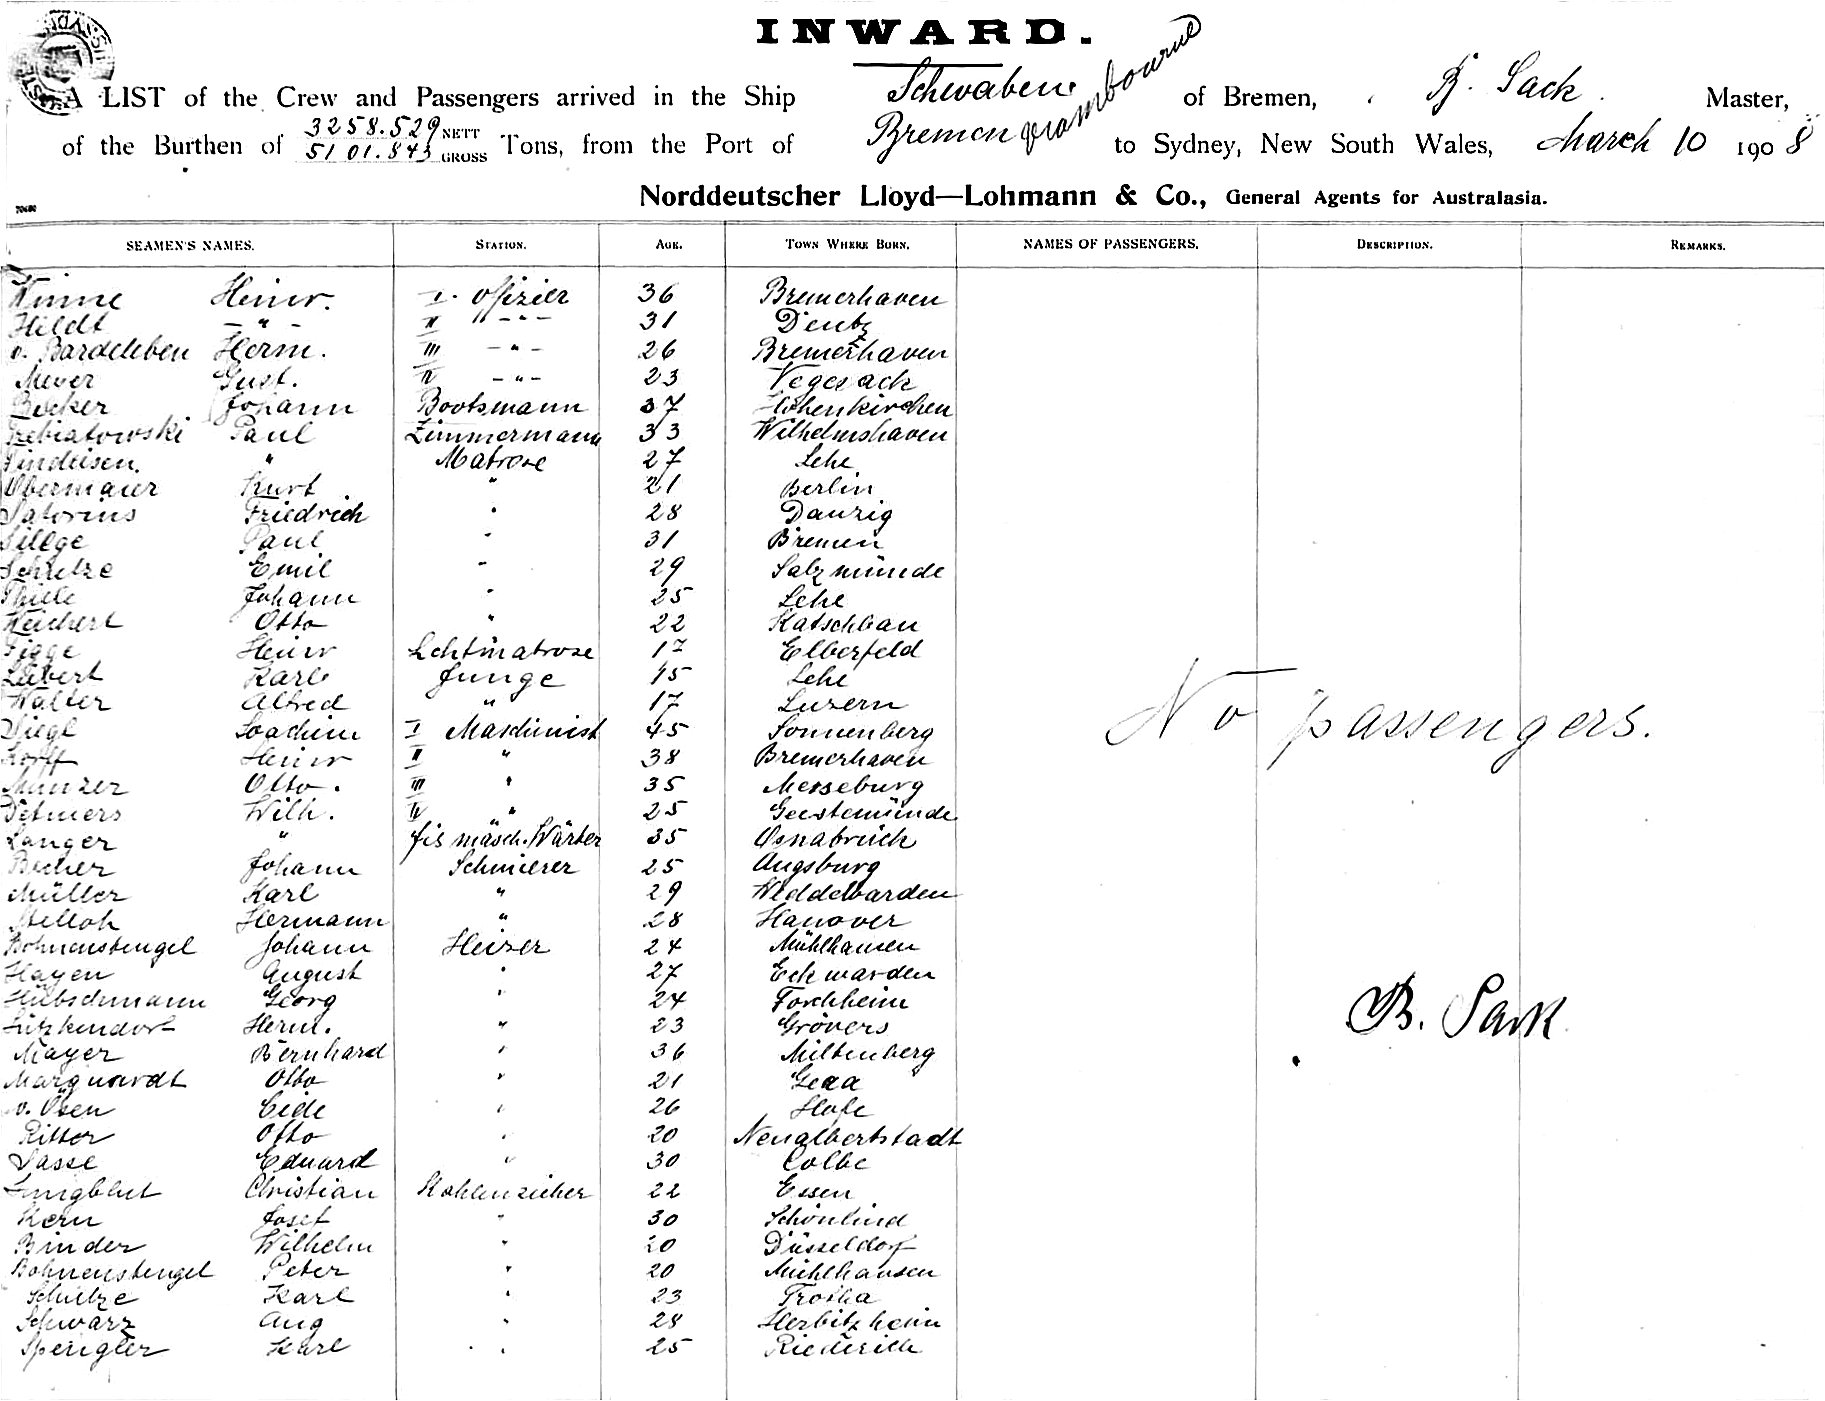 INWARD.
A LIST of the Crew and Passengers arrived in the Ship Schwaben of Bremen, B. Sack Master,
of the Burthen of 3258.529 NETT 5101.843 GROSS Tons, from the Port of Bremen to Sydney, New South Wales, March 10 1908
Norddeutscher Lloyd—Lohmann & Co., General Agents for Australasia.
SEAMEN'S NAMES. STATION. AGE. TOWN WHERE BORN. NAMES OF PASSENGERS. DESCRIPTION. REMARKS.
Winne Heinr. I. Offizier 36 Bremerhaven
Hildt - " - II " - " - 31 Deutz
v. Bardeleben Herm. III - " - 26 Bremerhaven
Meyer Gust. IV - " - 23 Vegesack
Becker Johann Bootsmann 37 Hohenkirchen
Paul Zimmermann 33 Wilhelmshaven
Findeisen. " Matrose 27 Lehe
Obermaier Kurt " 21 Berlin
Satorius Friedrich " 28 Danzig
Sillge Paul " 31 Bremen
Schulze Emil " 29 Salzmünde
Thiele Johann " 25 Lehe
Reichert Otto " 22 Katschbau
Figge Heinr Lchtmatrose 17 Elberfeld
Lübert Karl Junge 15 Lehe
Walter Alfred " 17 Luzern
Diegl Joachim I Maschinist 45 Sonnenberg
Korff Heinr II " 38 Bremerhaven
Münzer Otto. III " 35 Merseburg
Detmers Wilh. IV " 25 Geestemünde
Langer " Eis masch. Wärter 35 Osnabrück
Becher Johann Schmierer 25 Augsburg
Müller Karl " 29 Weddewarden
Stelloh Hermann " 28 Hanover
Bohnenstengel Johann Heizer 24 Mühlhausen
Hayen August " 27 Eckwarden
Hübschmann Georg " 24 Forchheim
Lützkendorf Herm. " 23 Gröbers
Mayer Bernhard " 36 Miltenberg
Marquardt Otto " 21 Gera
v. Osen Eide " 26 Hofe
Ritter Otto " 20 Neualbertstadt
Sasse Eduard " 30 Colbe
Jungblut Christian Kohlenzieher 22 Essen
Kern Josef " 30 Schönlind
Binder Wilhelm " 20 Düsseldorf
Bohnenstengel Peter " 20 Mühlhausen
Schulze Karl " 23 Trotha
Schwarz Aug " 28 Herbitzheim
Spengler Karl " 25
No passengers.
B. Sack